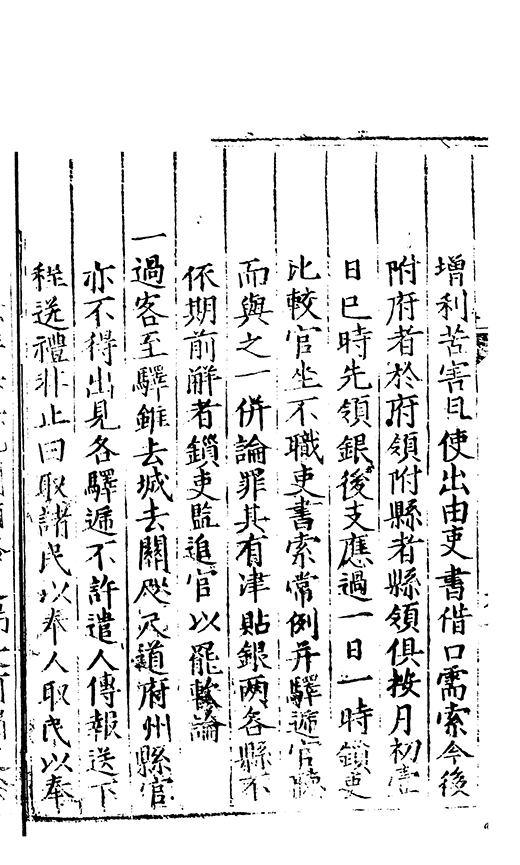 增利苦害且使出由吏書借口需索今後
附府者於府領附縣者縣領俱按月初壹
日巳時先領銀後支應過一日一時鎖吏
比較官坐不職吏書索常例并驛遞官聽
而與之一併論罪其有津貼銀两各縣不
依期前觧者鎖吏監追官以罷軟論
一過客至驛雖去城去關咫尺道府州縣官
亦不得出見各驛遞不許遣人傳報送下
程送禮非止曰取諸民以奉人取民以奉